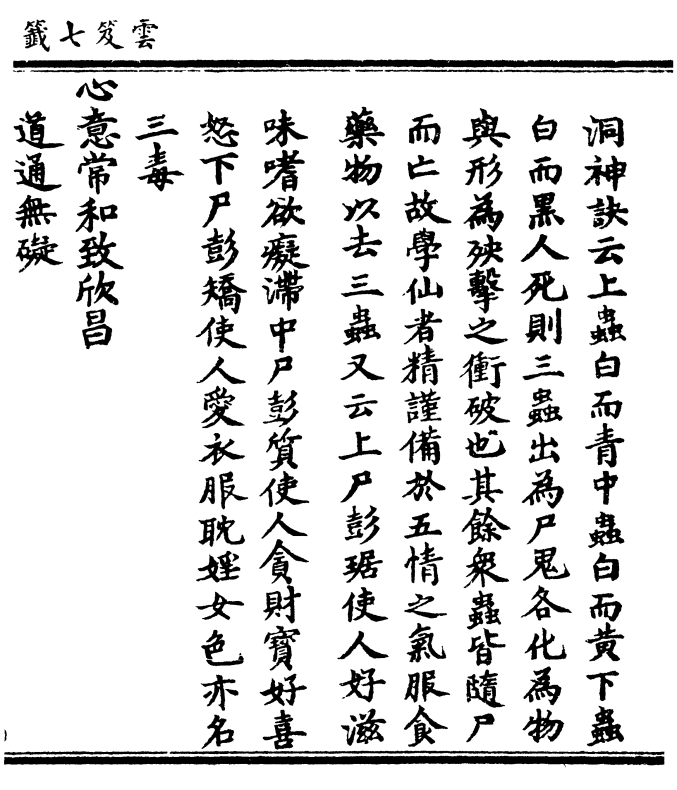 雲笈七籤
洞神訣云上蟲白而青中蟲白而黃下蟲
白而黑人死則三蟲出為尸鬼各化為物
與形為殃擊之衝破也其餘衆蟲皆隨尸
而亡故學仙者精謹備於五情之氣服食
藥物以去三蟲又云上尸彭琚使人好滋
味嗜欲癡滯中尸彭質使人貪財寶好喜
怒下尸彭矯使人愛衣服耽婬女色亦名
三毒
心意常和致欣昌
道通無礙